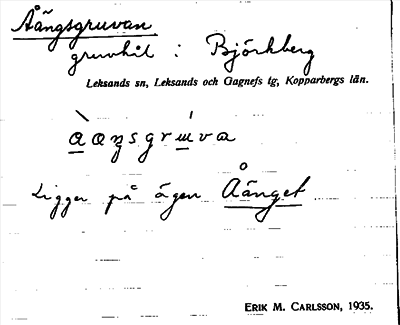 Åängsgruvan
gruvhål : Björkberg
Leksands sn, Leksands och Gagnefs tg, Kopparbergs län.
àaŋsgrúva
Ligger på ägan Åänget
ERIK M. CARLSSON, 1935.